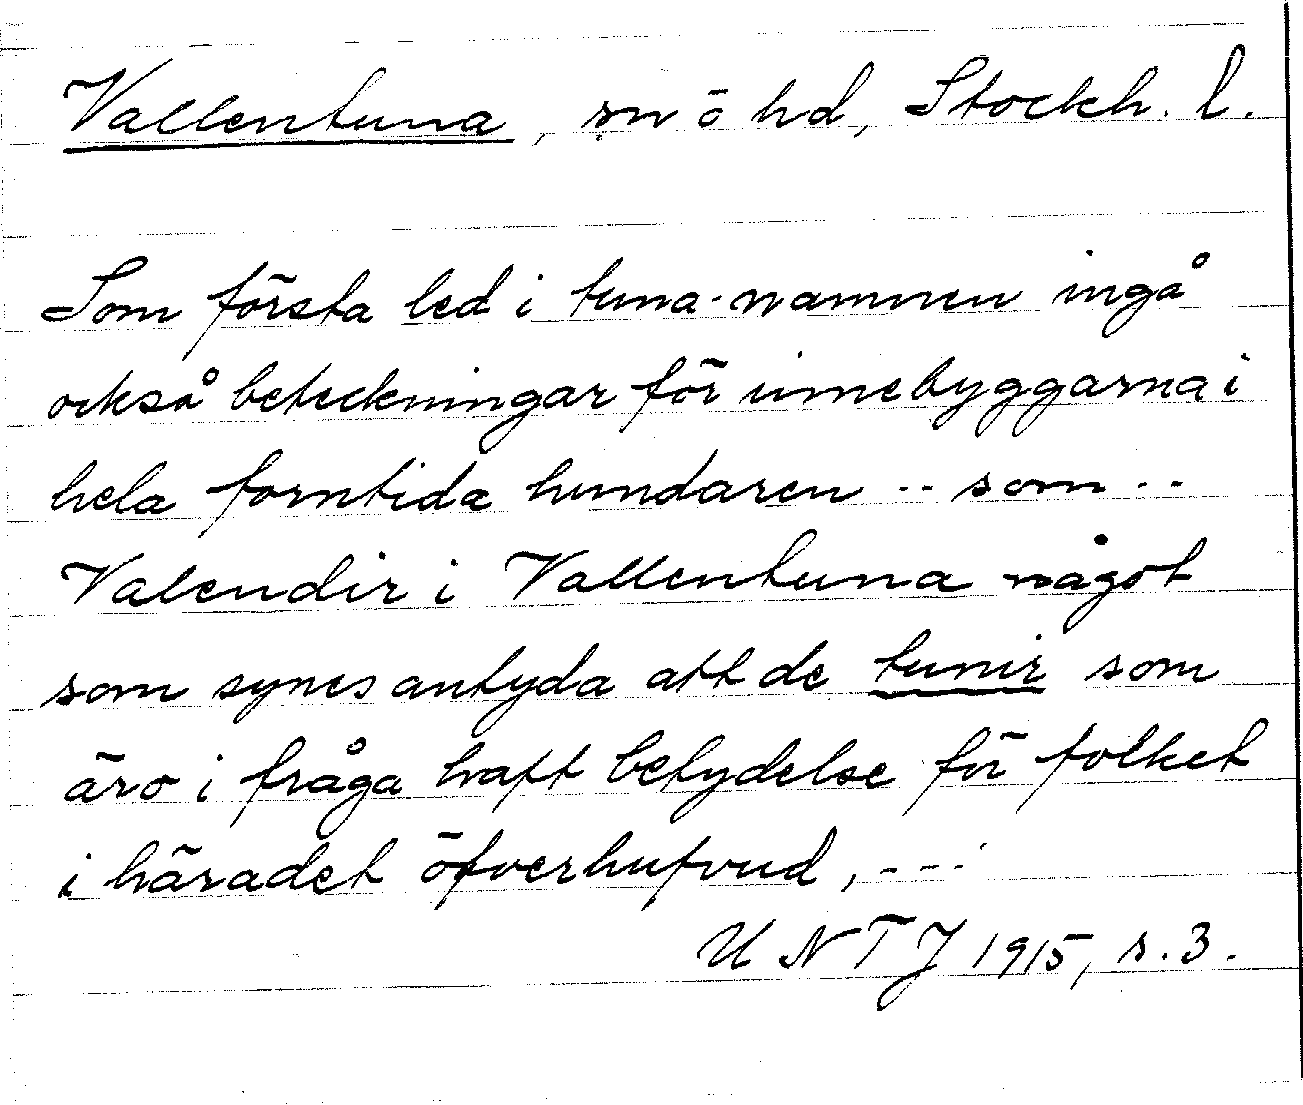 Vallentuna, sn ö hd, Stockh. l.
Som första led i tuna-namnen ingå
också beteckningar för innebyggarna i
hela forntida hundaren .. som ..
Valendir i Vallentuna något
som synes antyda att de tunir som
äro i fråga haft betydelse för folket
i häradet öfverhufvud, ---
UNTJ 1915, s. 3.